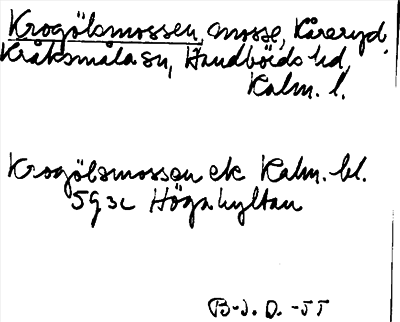 Krogölsmossen, mosse, Kåreryd,
Kråksmåla sn, Handbörds hd,
Kalm. l.
Krogölsmossen ek Kalm. bl.
5g 3c Högahyltan
B-J. D. -55